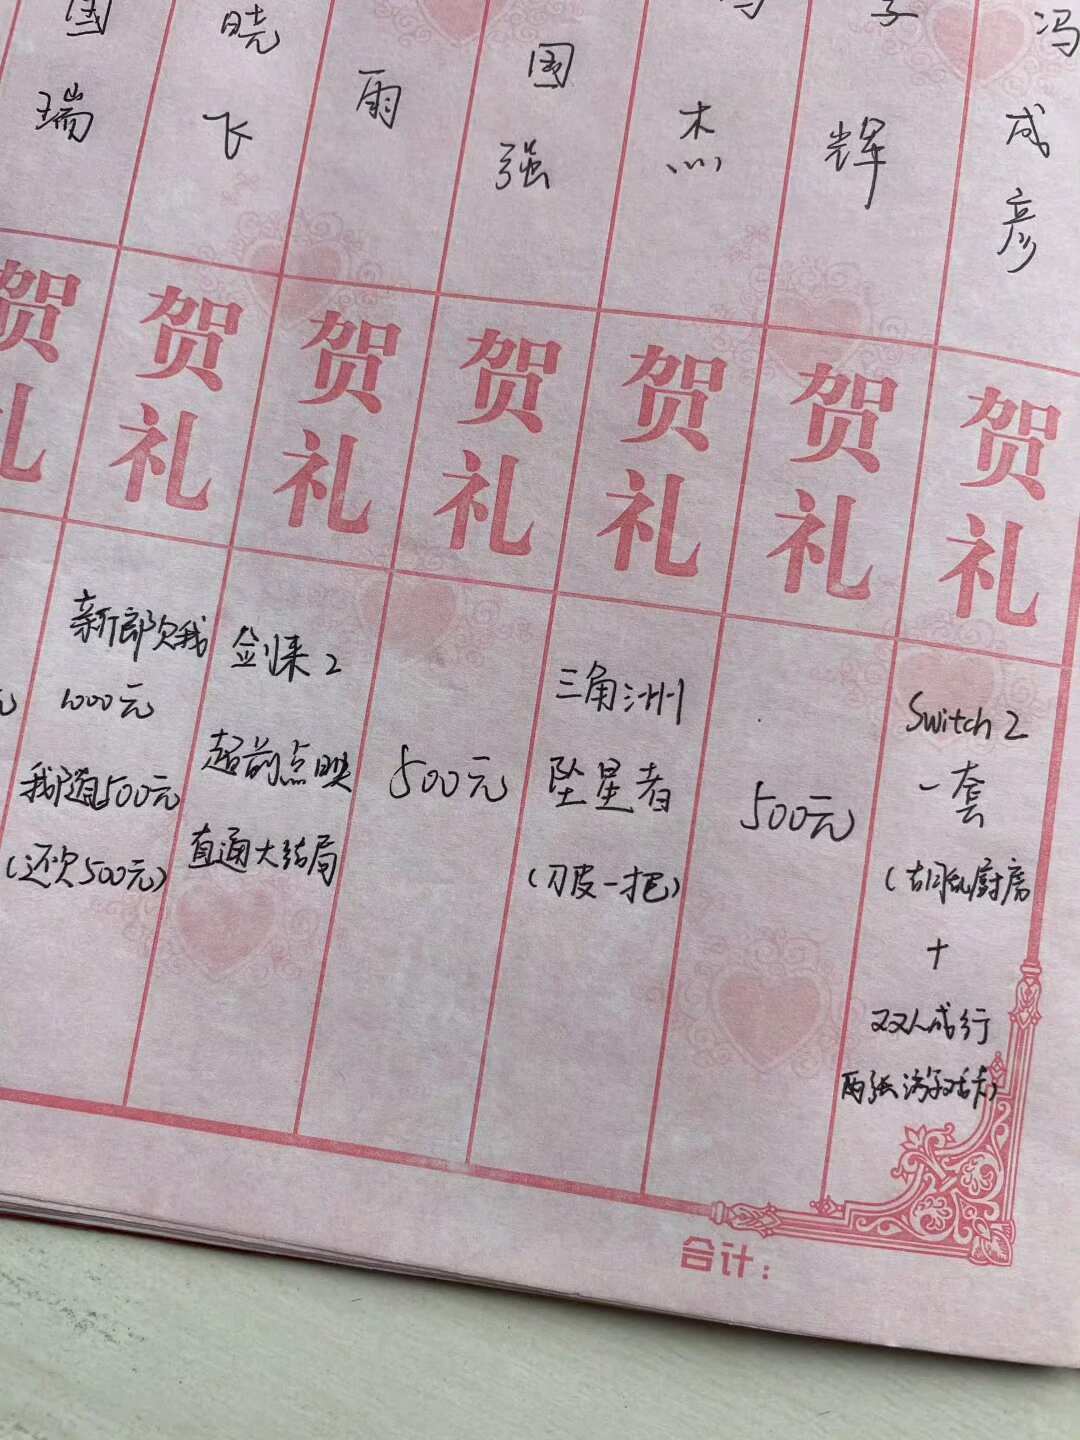 冯
成
彦
贺
礼
Switch 2
一套
(胡闹厨房
+
双人成行
两张游戏卡)
辉
贺
礼
500元
杰
贺
礼
三角洲
坠星者
(刀皮一把)
国
强
贺
礼
500元
雨
贺
礼
剑来2
超前点映
直通大结局
晓
飞
贺
礼
新郎欠我
1000元
我随500元
(还欠500元)
国
瑞
贺
礼
元
合计: